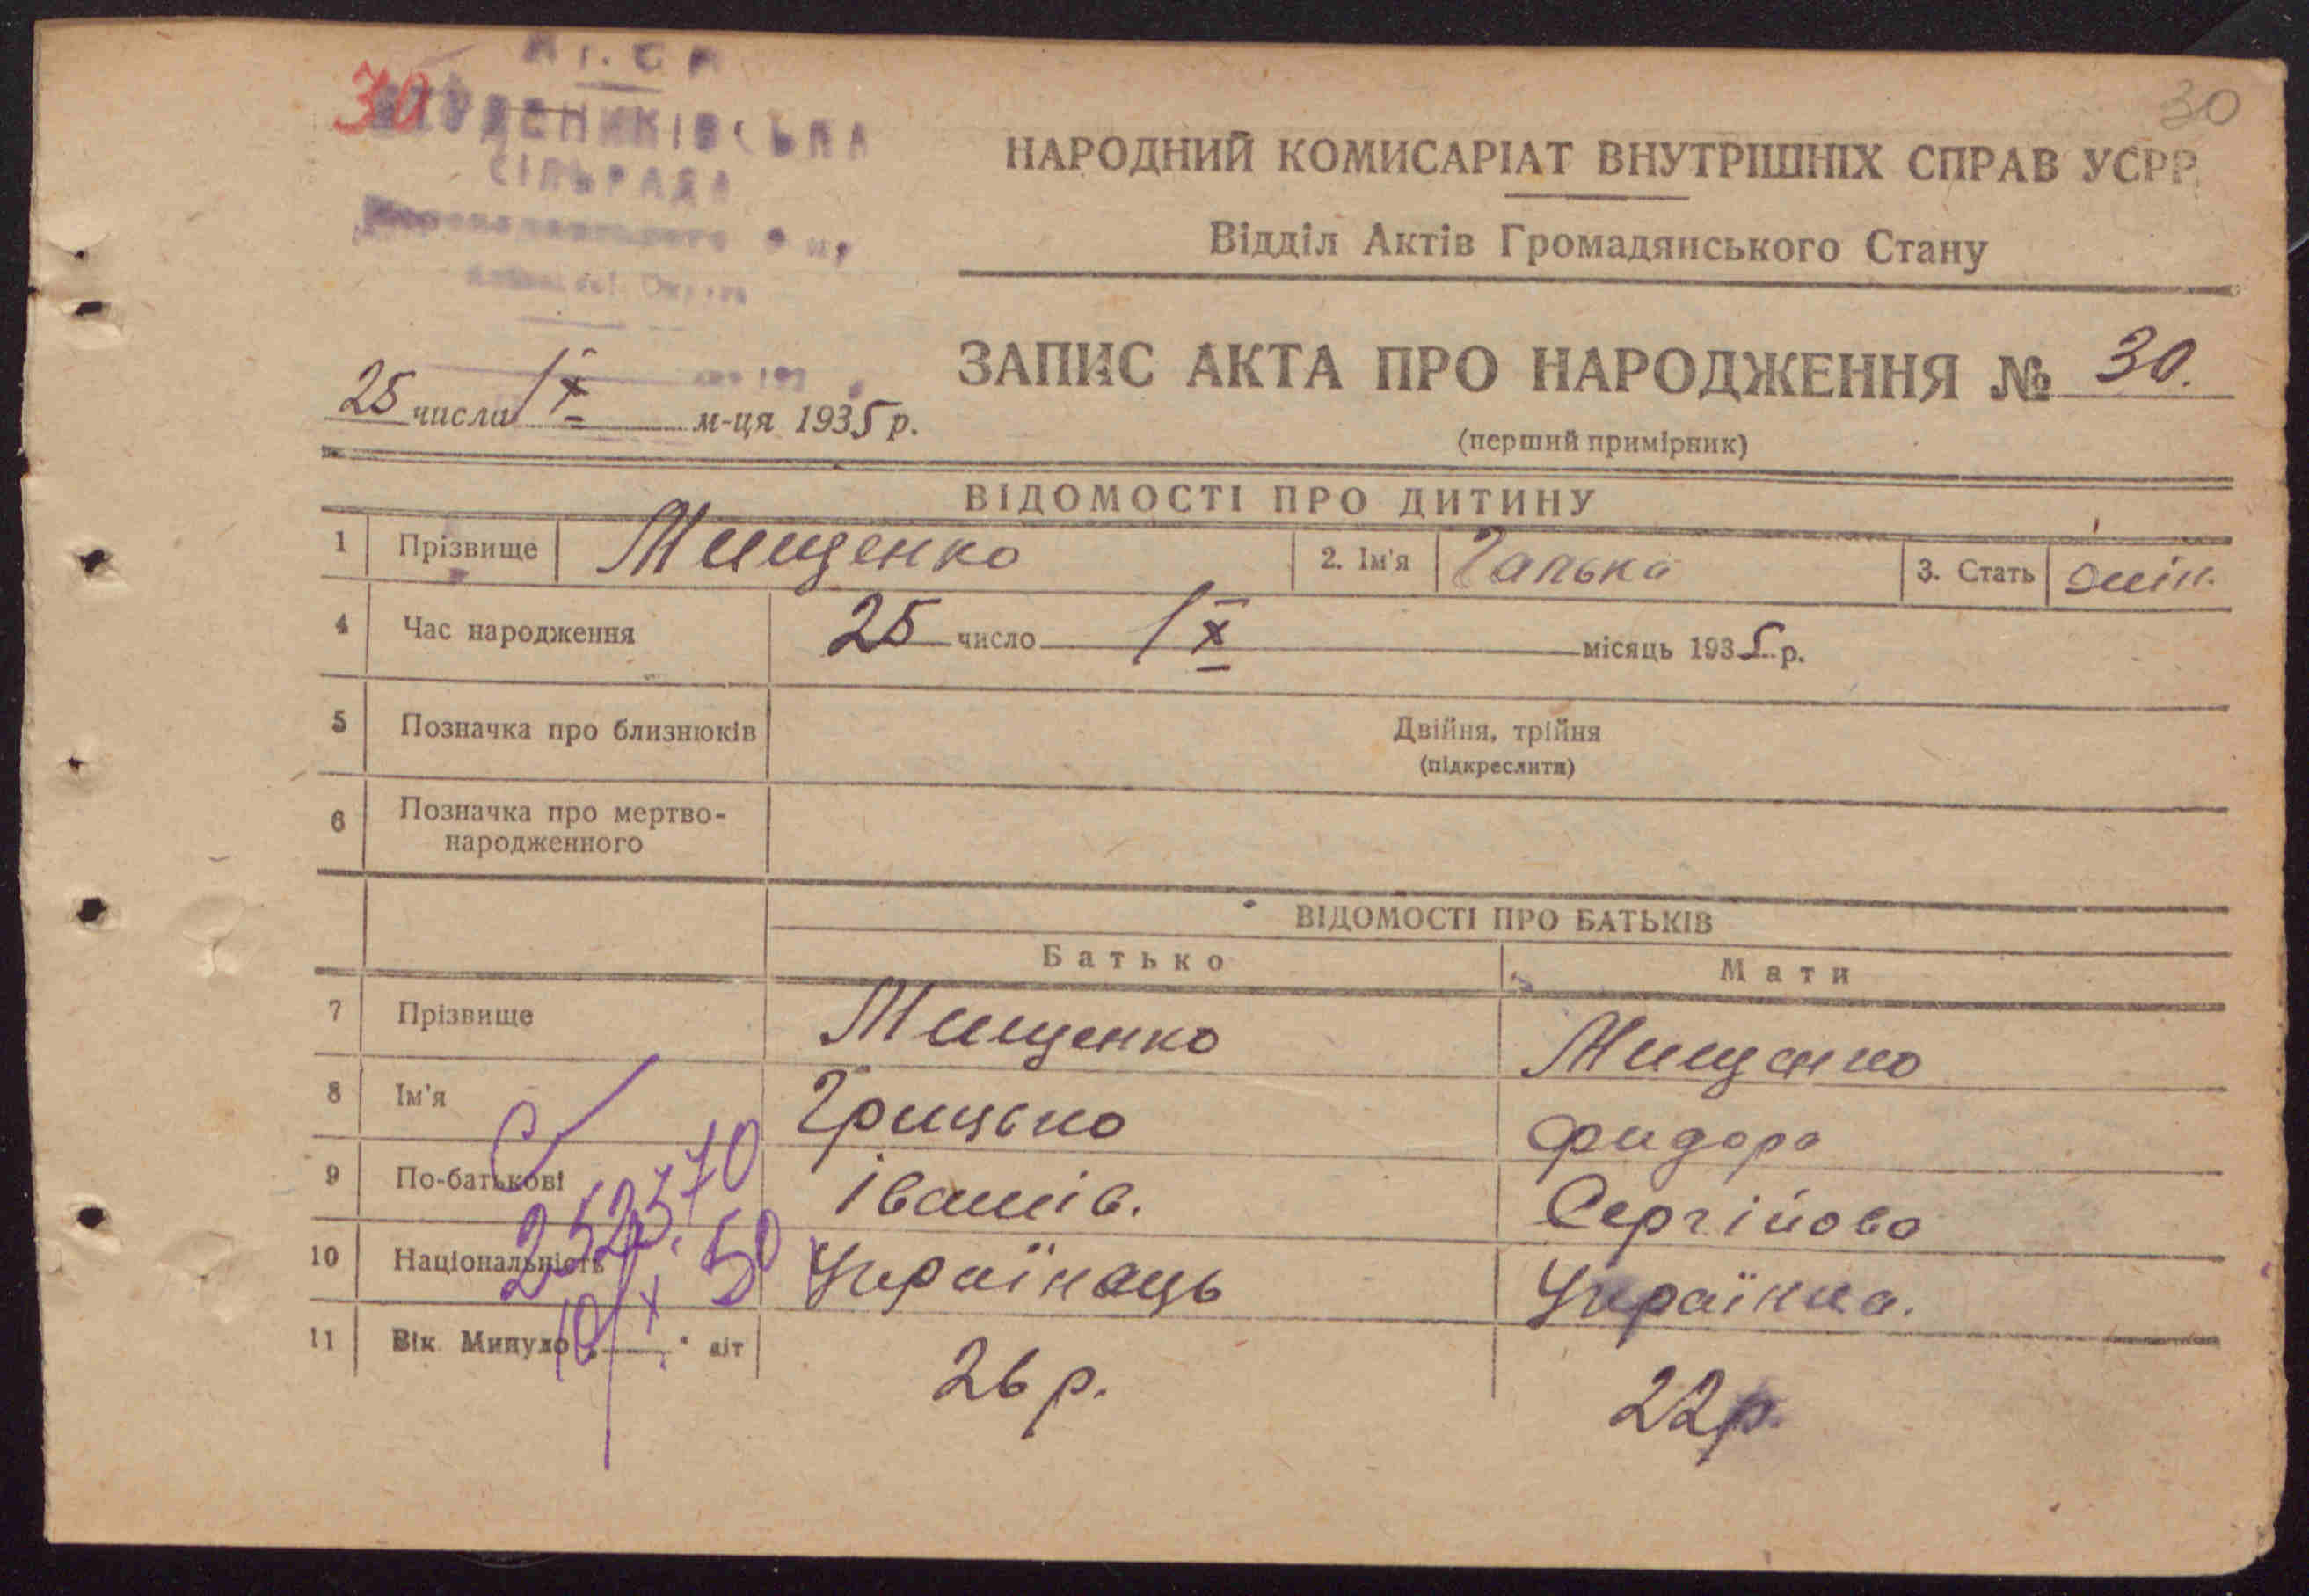 30
СІЛЬРАДА
30
НАРОДНИЙ КОМИСАРІАТ ВНУТРІШНІХ СПРАВ УСРР
Відділ Актів Громадянського Стану
ЗАПИС АКТА ПРО НАРОДЖЕННЯ № 30.
25 числа IX м-ця 1935 р.
(перший примірник)
ВІДОМОСТІ ПРО ДИТИНУ
1 Прізвище Мищенко 2. Ім'я Галька 3. Стать жін.
4 Час народження 25 число IX місяць 1935 р.
5 Позначка про близнюків Двійня, трійня
(підкреслити)
6 Позначка про мертво-
народженного
ВІДОМОСТІ ПРО БАТЬКІВ
Батько Мати
7 Прізвище Мищенко Мищенко
8 Ім'я Грицько Фидора
9 По-батькові Іванів. Сергійова
10 Національність Українець Українка.
11 Вік Минуло „ “ літ 26 р. 22 р.